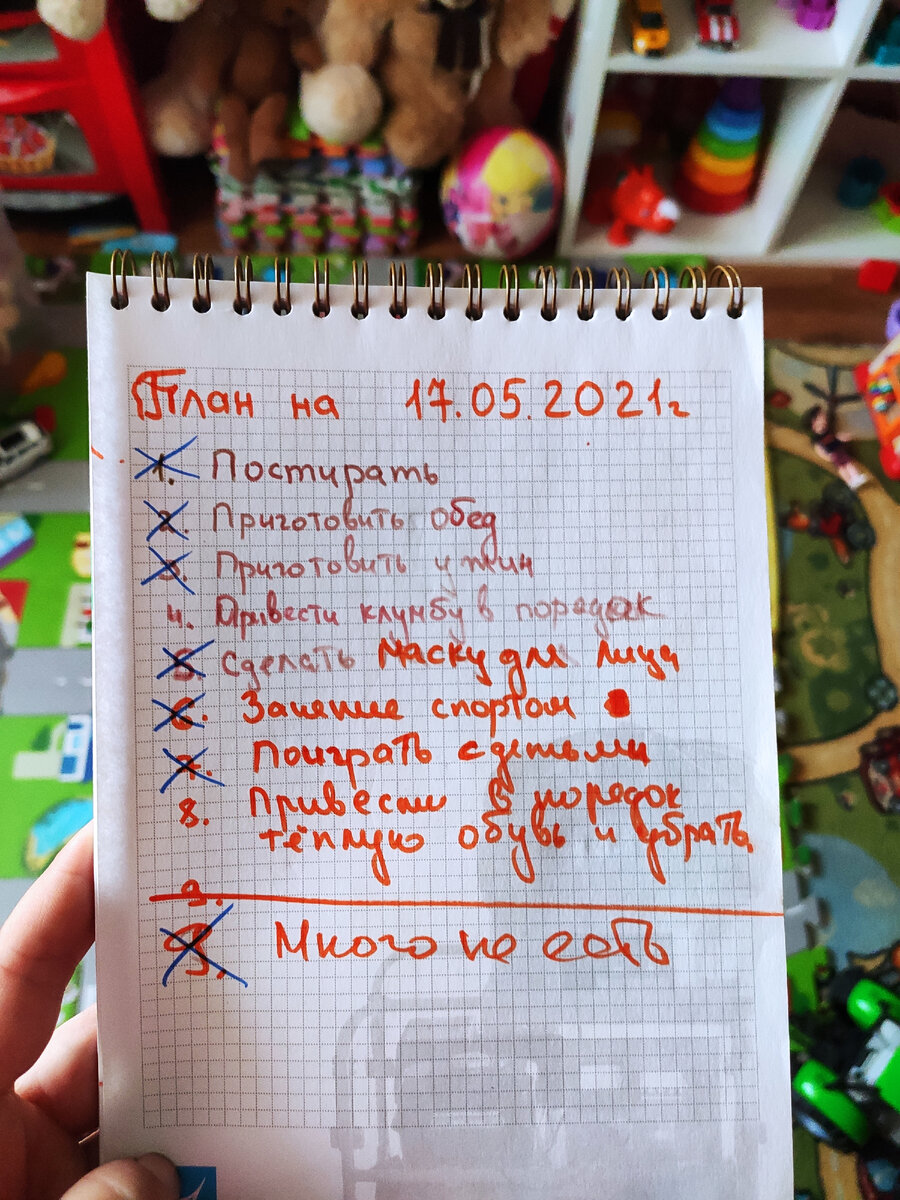 План на 17.05.2021г
1. Постирать
2. Приготовить обед
3. Приготовить ужин
4. Привести клумбу в порядок
5. Сделать маску для лица
6. Занятие спортом
7. Поиграть с детьми
8. Привести в порядок
тёплую обувь и убрать.
9.
9. Много не есть